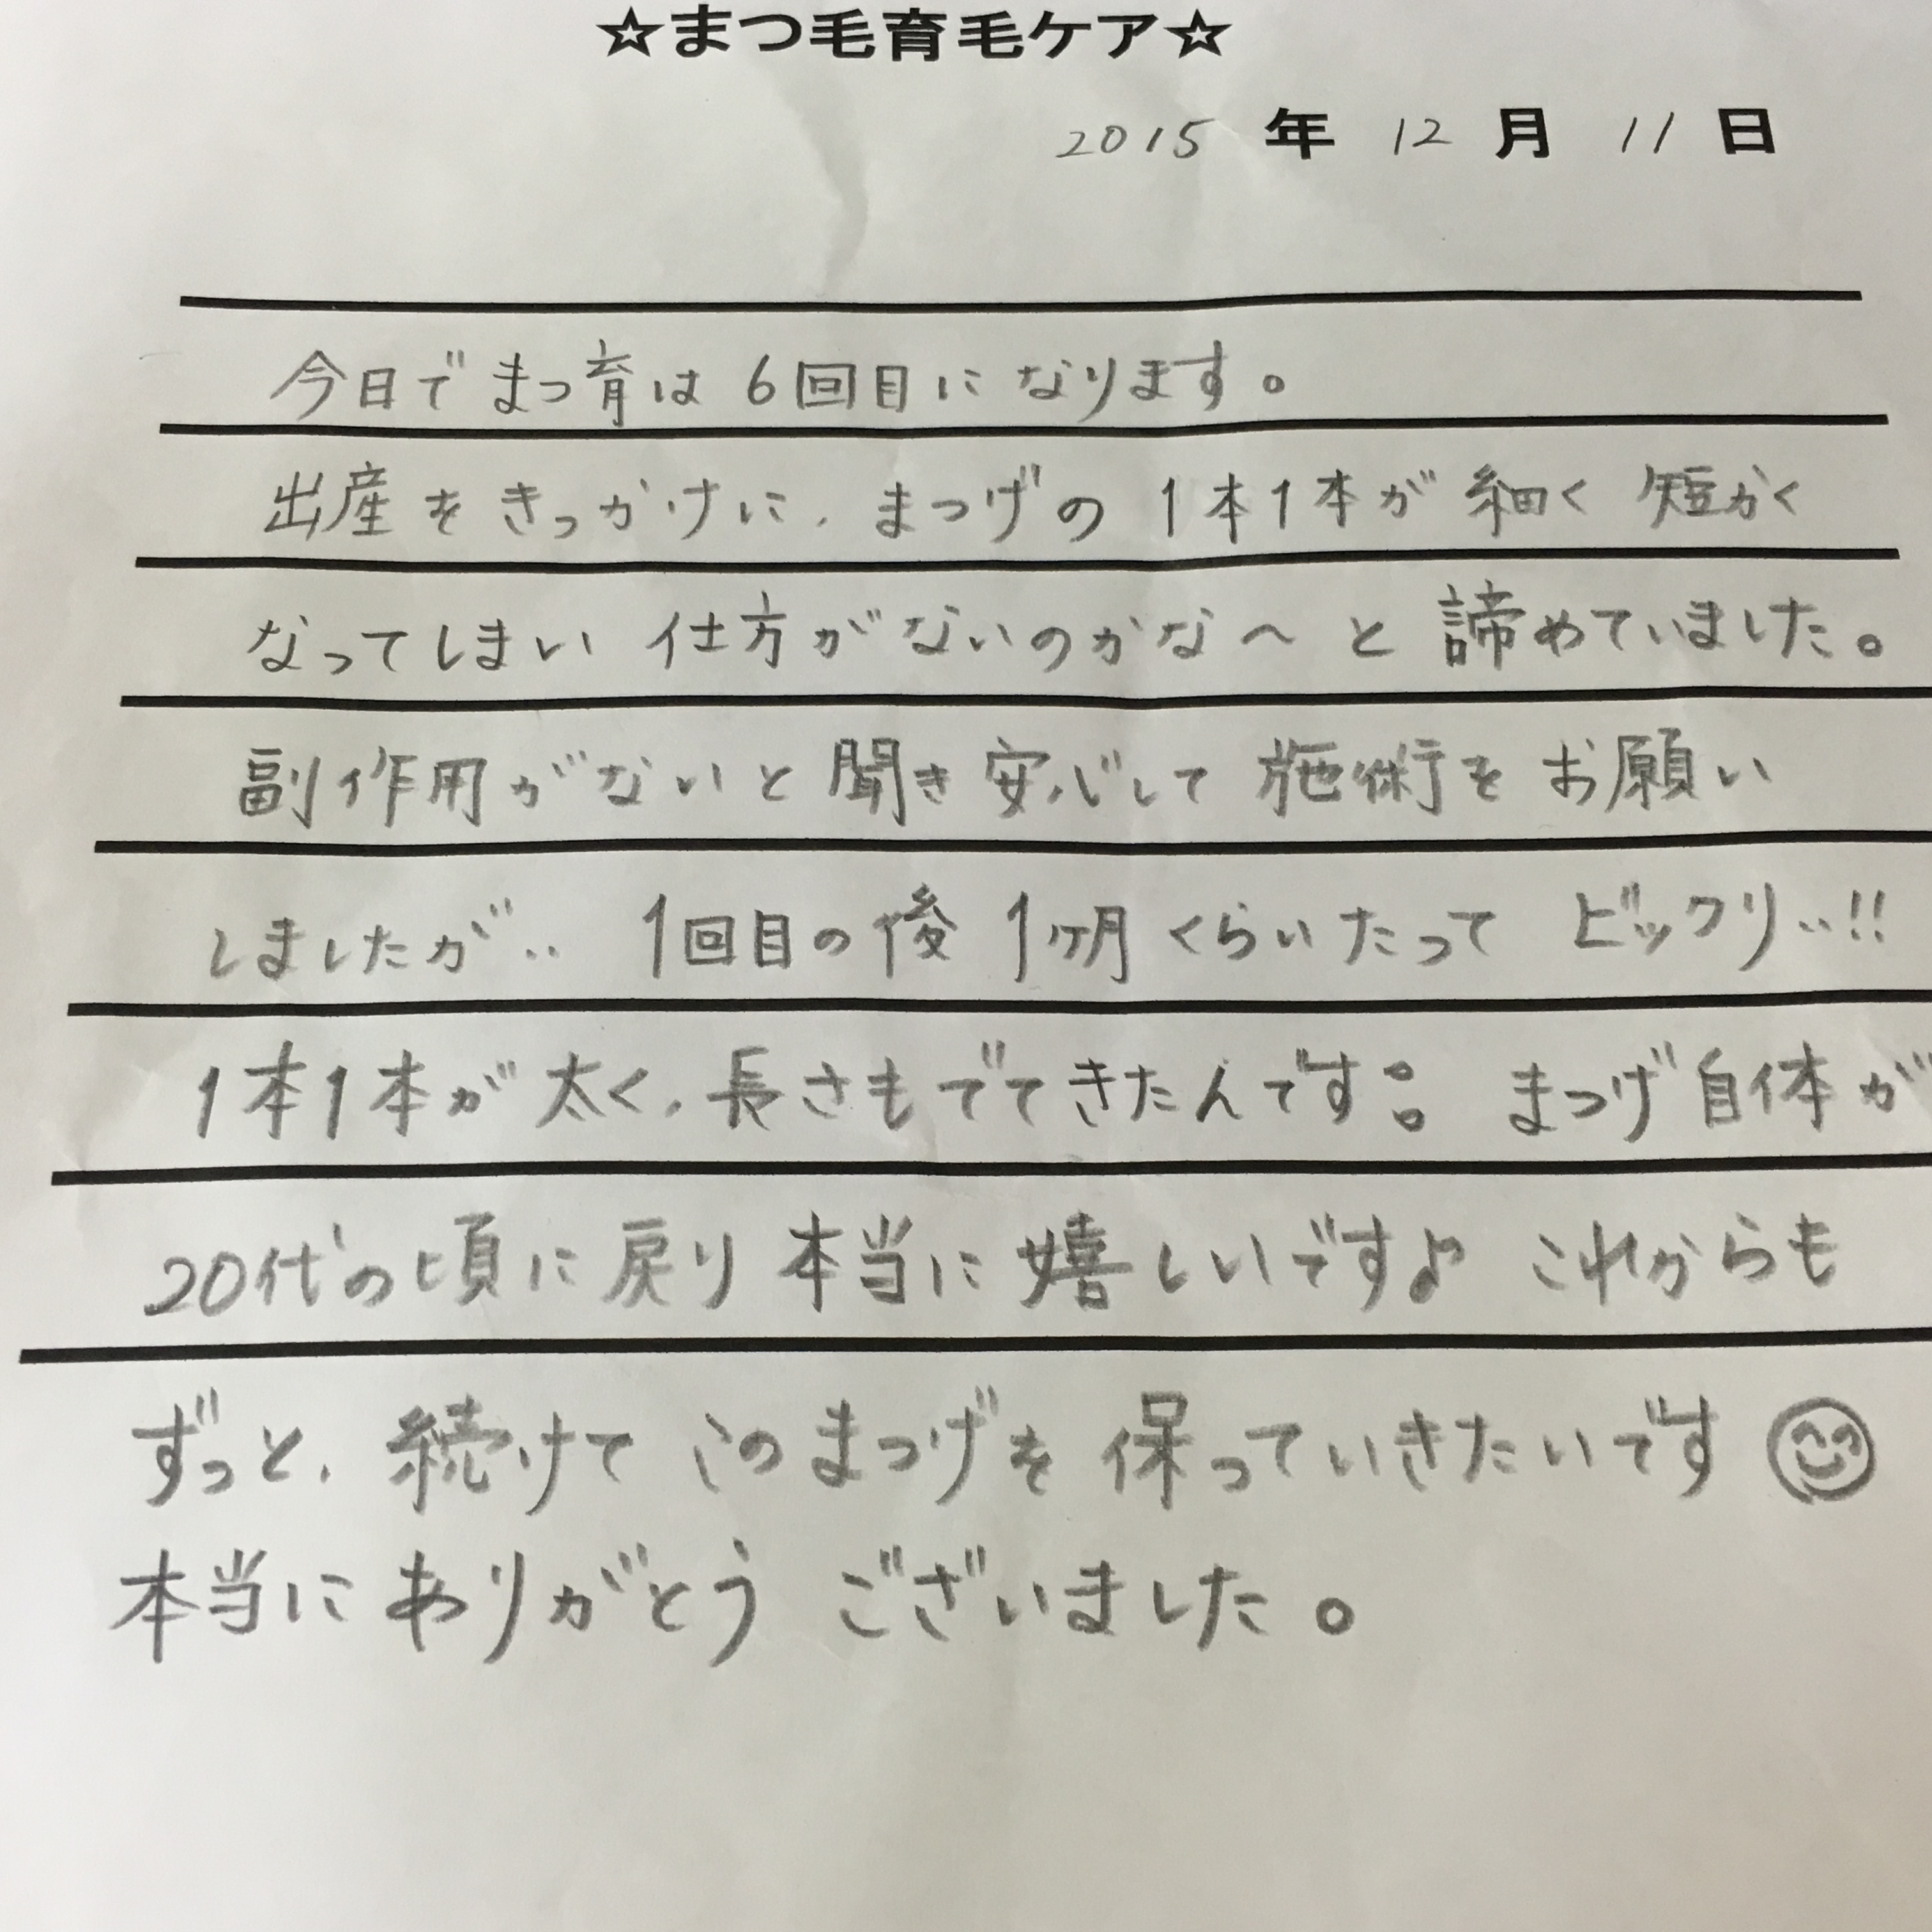 ☆まつ毛育毛ケア☆
2015 年 12 月 11 日
今日でまつ育は 6回目になります。
出産をきっかけに、まつげの 1本1本が 細く 短かく
なってしまい 仕方がないのかな〜 と 諦めていました。
副作用がないと 聞き 安心して 施術を お願い
しましたが‥ 1回目の後 1ヶ月くらいたって ビックリ‥!!
1本1本が 太く、長さもでてきたんです。。 まつげ自体が
20代の頃に戻り 本当に 嬉しいです♪ これからも
ずっと、続けて このまつげを 保っていきたいです 😊
本当に ありがとう ございました。